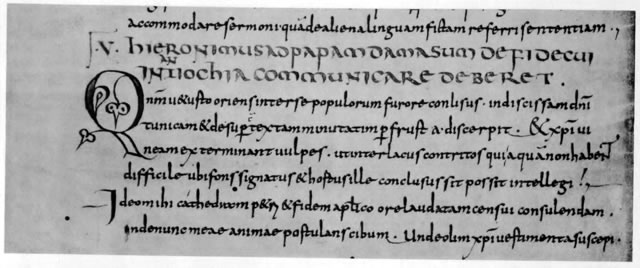 accommodare sermoni· quã de aliena linguam fictam referri sententiam·,
V· HIERONIMUS AD PAPAM DAMASUM DE FIDE CUI
IN ANTIOCHIA COMMUNICARE DEBERET·
Qnm̅ uetusto oriens inter se populorum furore conlisus· indiscissam dn̅i
tunicam & desuꝑ textam minutatim ꝑ frusta discerpit· & xp̅i ui
neam exterminant uulpes· ut inter lacus contritos qui aquã non habent
difficile ubi fons signatus & hortus ille conclusus sit possit intellegi!
Ideo mihi cathedram p&ri & fidem apl̅ico ore laudatam censui consulendam·
inde nunc meae animae postulans cibum· Unde olim xp̅i uestimenta suscepi·